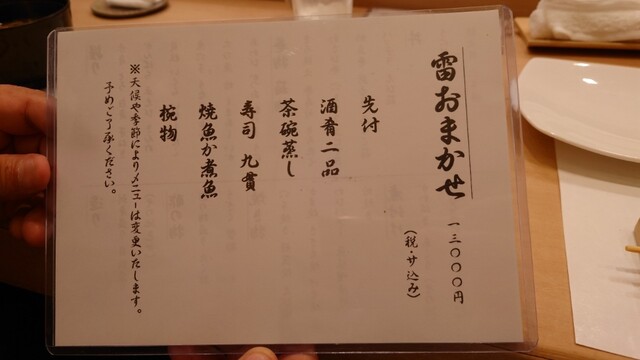 雷おまかせ 一三〇〇〇円
(税・サ込み)
先付
酒肴二品
茶碗蒸し
寿司 九貫
焼魚か煮魚
椀物
※天候や季節によりメニューは変更いたします。
予めご了承ください。